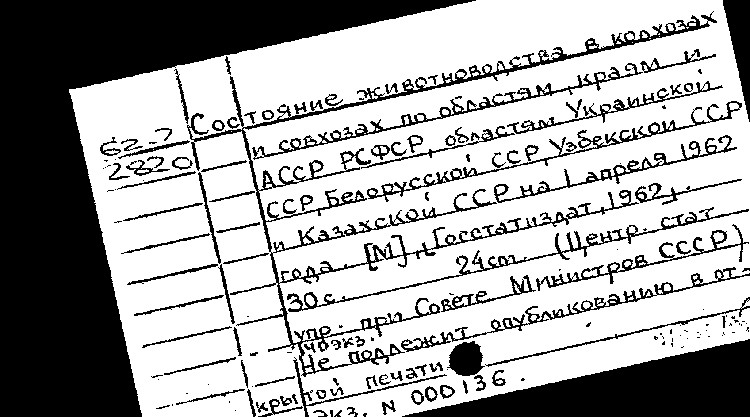 62-7
2820
Состояние животноводства в колхозах
и совхозах по областям, краям и
АССР РСФСР, областям Украинской
ССР, Белорусской ССР, Узбекской ССР
и Казахской ССР на 1 апреля 1962
года. [М], [Госстатиздат, 1962].
30 с. 24 см. (Центр. стат
упр. при Совете Министров СССР)
экз.
Не подлежит опубликованию в от-
крытой печати
экз. N 000136.